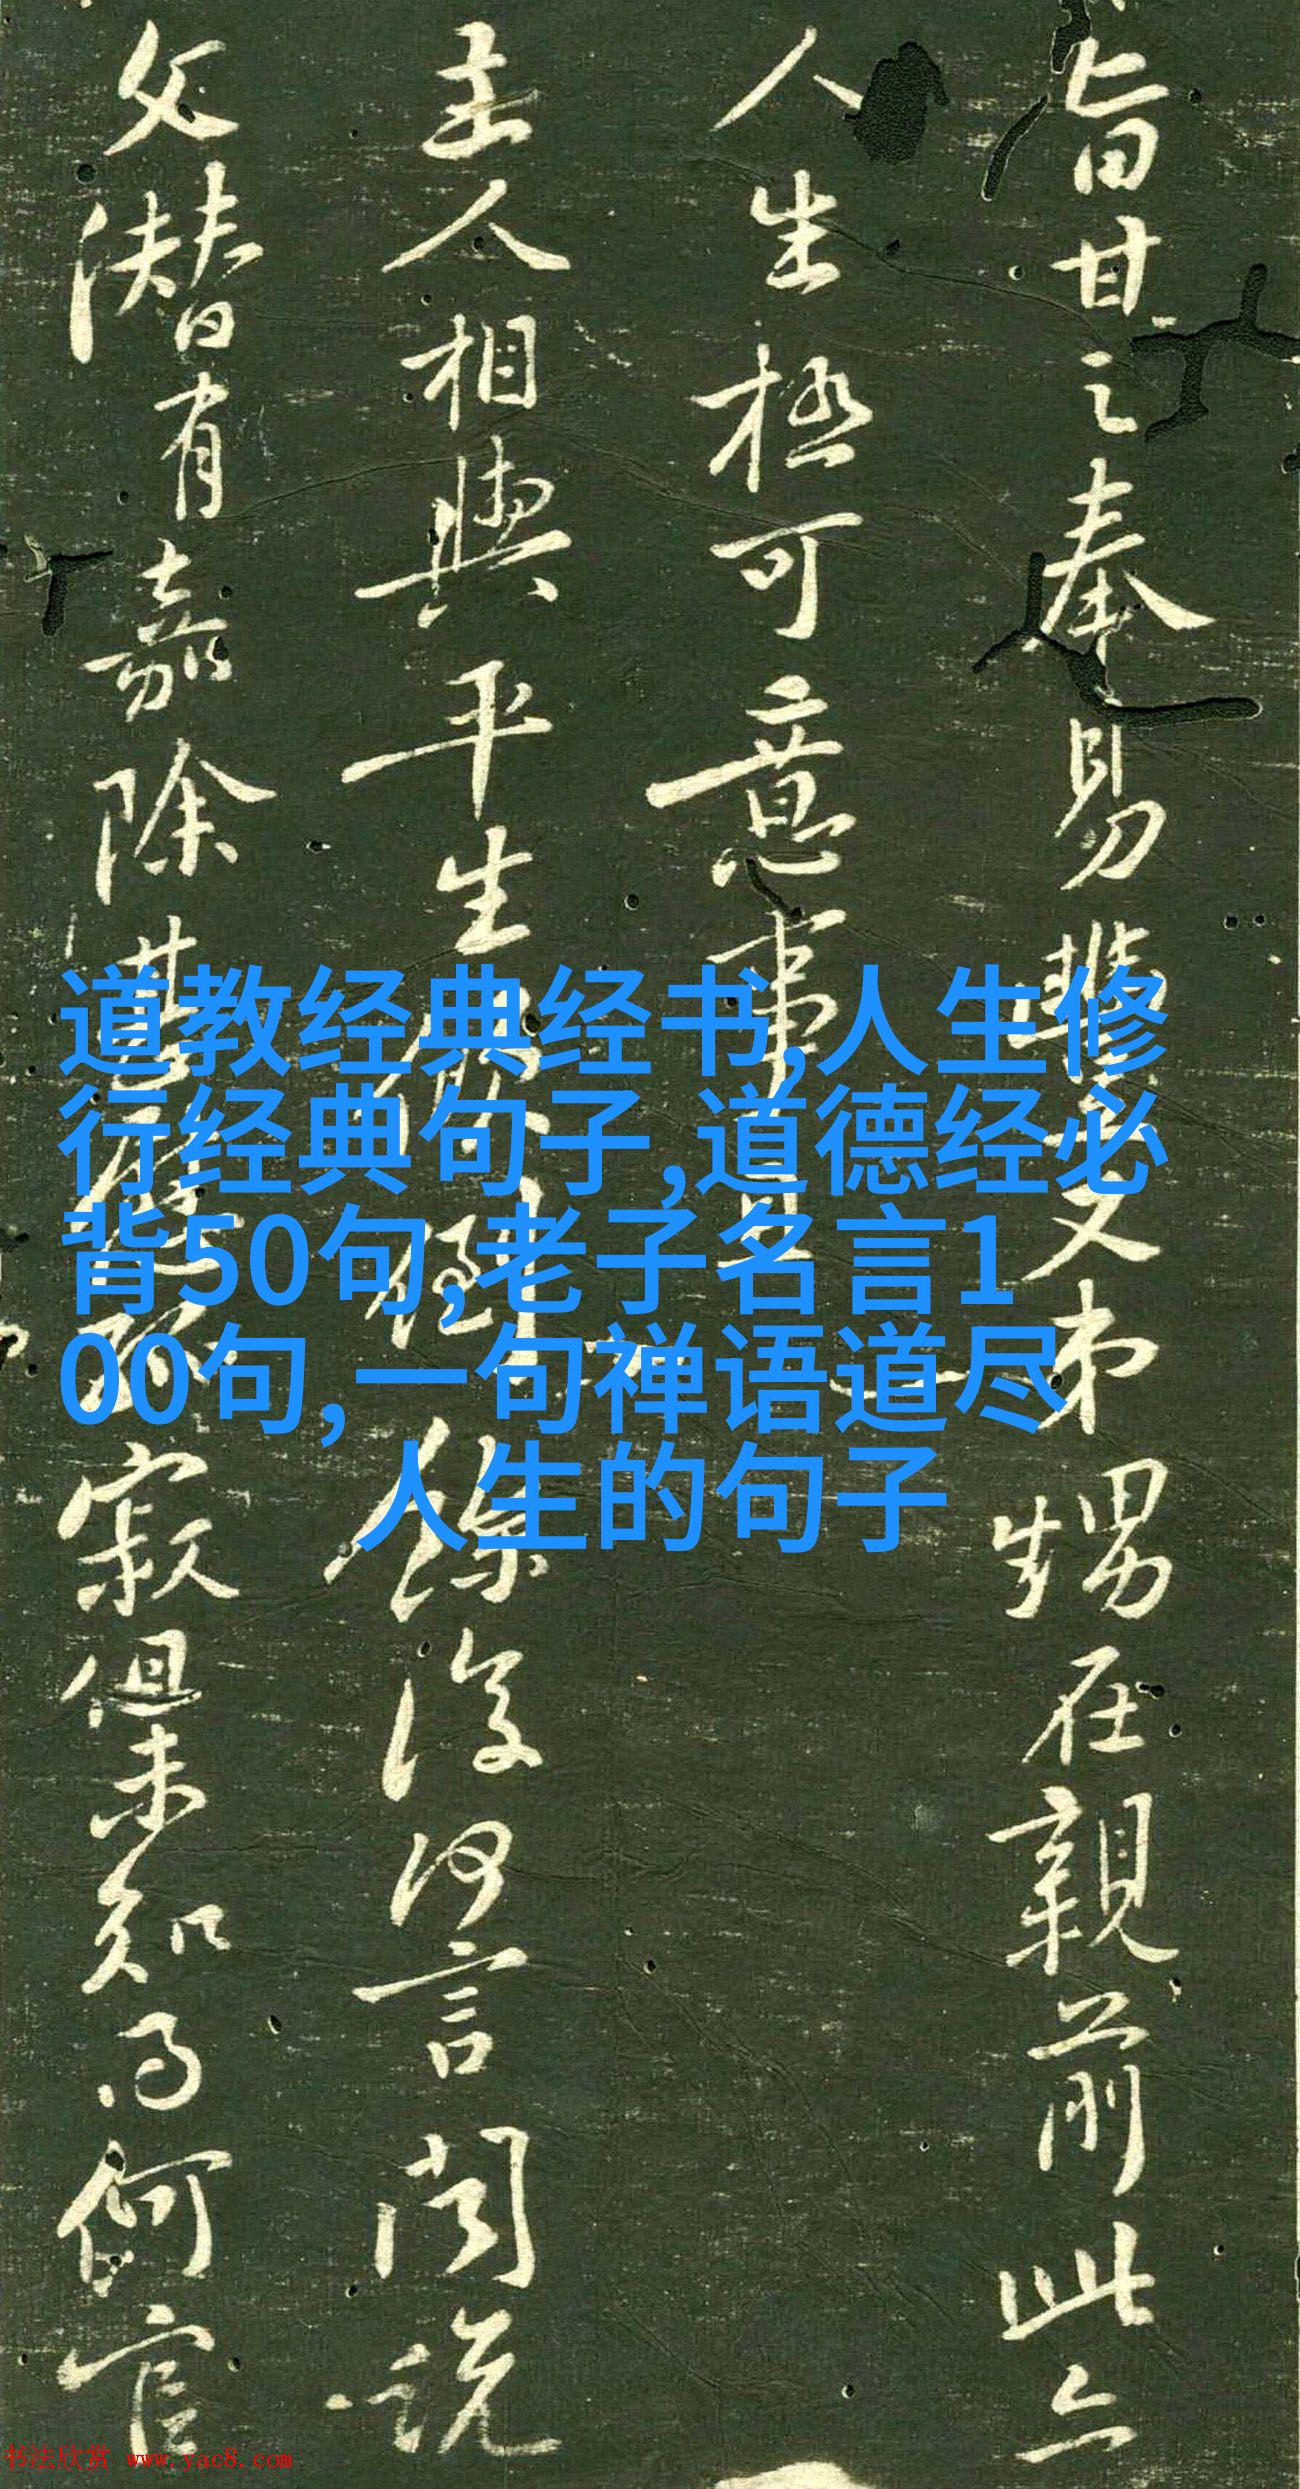 旨甘之奉易辦又弟甥在親前此亦
人生極可意事
主人相與平生倒餘復何言閒說
父潜有嘉除甚慰孤寂但未知得何官
道教经典经书,人生修
行经典句子,道德经必
背50句,老子名言1
00句,一句禅语道尽
人生的句子
书法欣赏 www.yac8.com